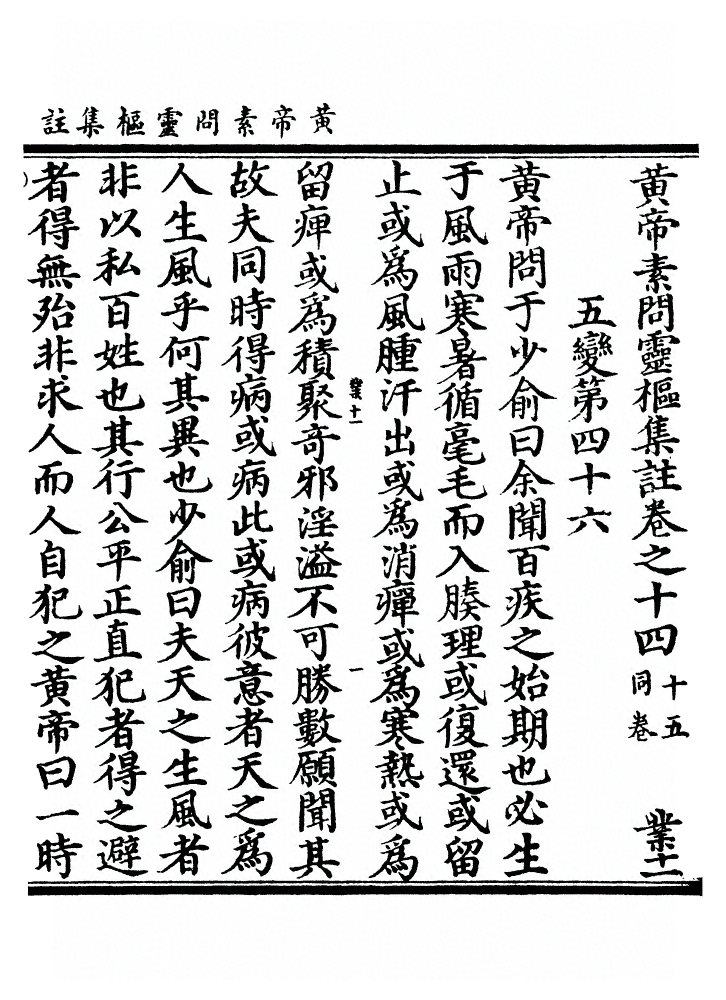 黃帝素問靈樞集註
黃帝素問靈樞集註卷之十四 十五同卷 業十一
五變第四十六
黃帝問于少俞曰余聞百疾之始期也必生
于風雨寒暑循毫毛而入腠理或復還或留
止或爲風腫汗出或爲消癉或爲寒熱或爲
業十一 一
留痺或爲積聚奇邪淫溢不可勝數願聞其
故夫同時得病或病此或病彼意者天之爲
人生風乎何其異也少俞曰夫天之生風者
非以私百姓也其行公平正直犯者得之避
者得無殆非求人而人自犯之黃帝曰一時